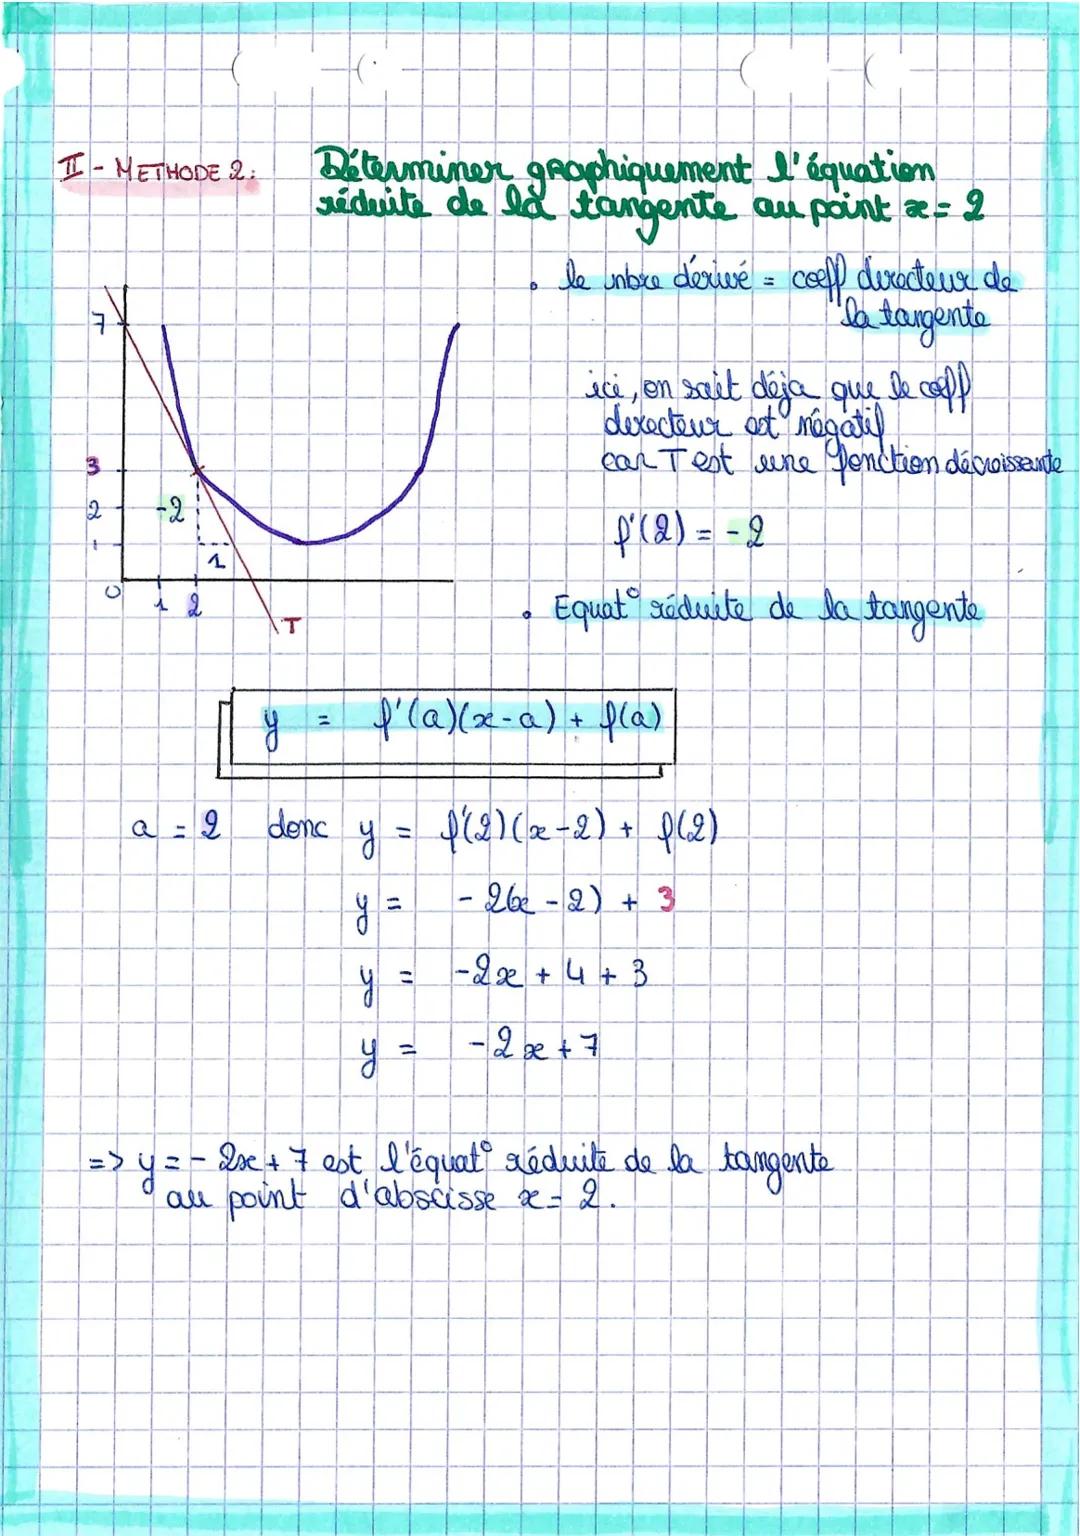 II - METHODE 2: Déterminer graphiquement l'équation
réduite de la tangente au point x = 2
• le nbre dérivé = coeff directeur de
la tangente
ici, on sait déja que le coeff
directeur est négatif
car T est une fonction décroissante
f'(2) = -2
• Equat° réduite de la tangente
7
3
2
1
-2
1
0
1
2
T
y = f'(a)(x-a) + f(a)
a = 2 donc y = f'(2)(x-2) + f(2)
y = -2(x-2) + 3
y = -2x + 4 + 3
y = -2x + 7
=> y = -2x + 7 est l'équat° réduite de la tangente
au point d'abscisse x = 2.